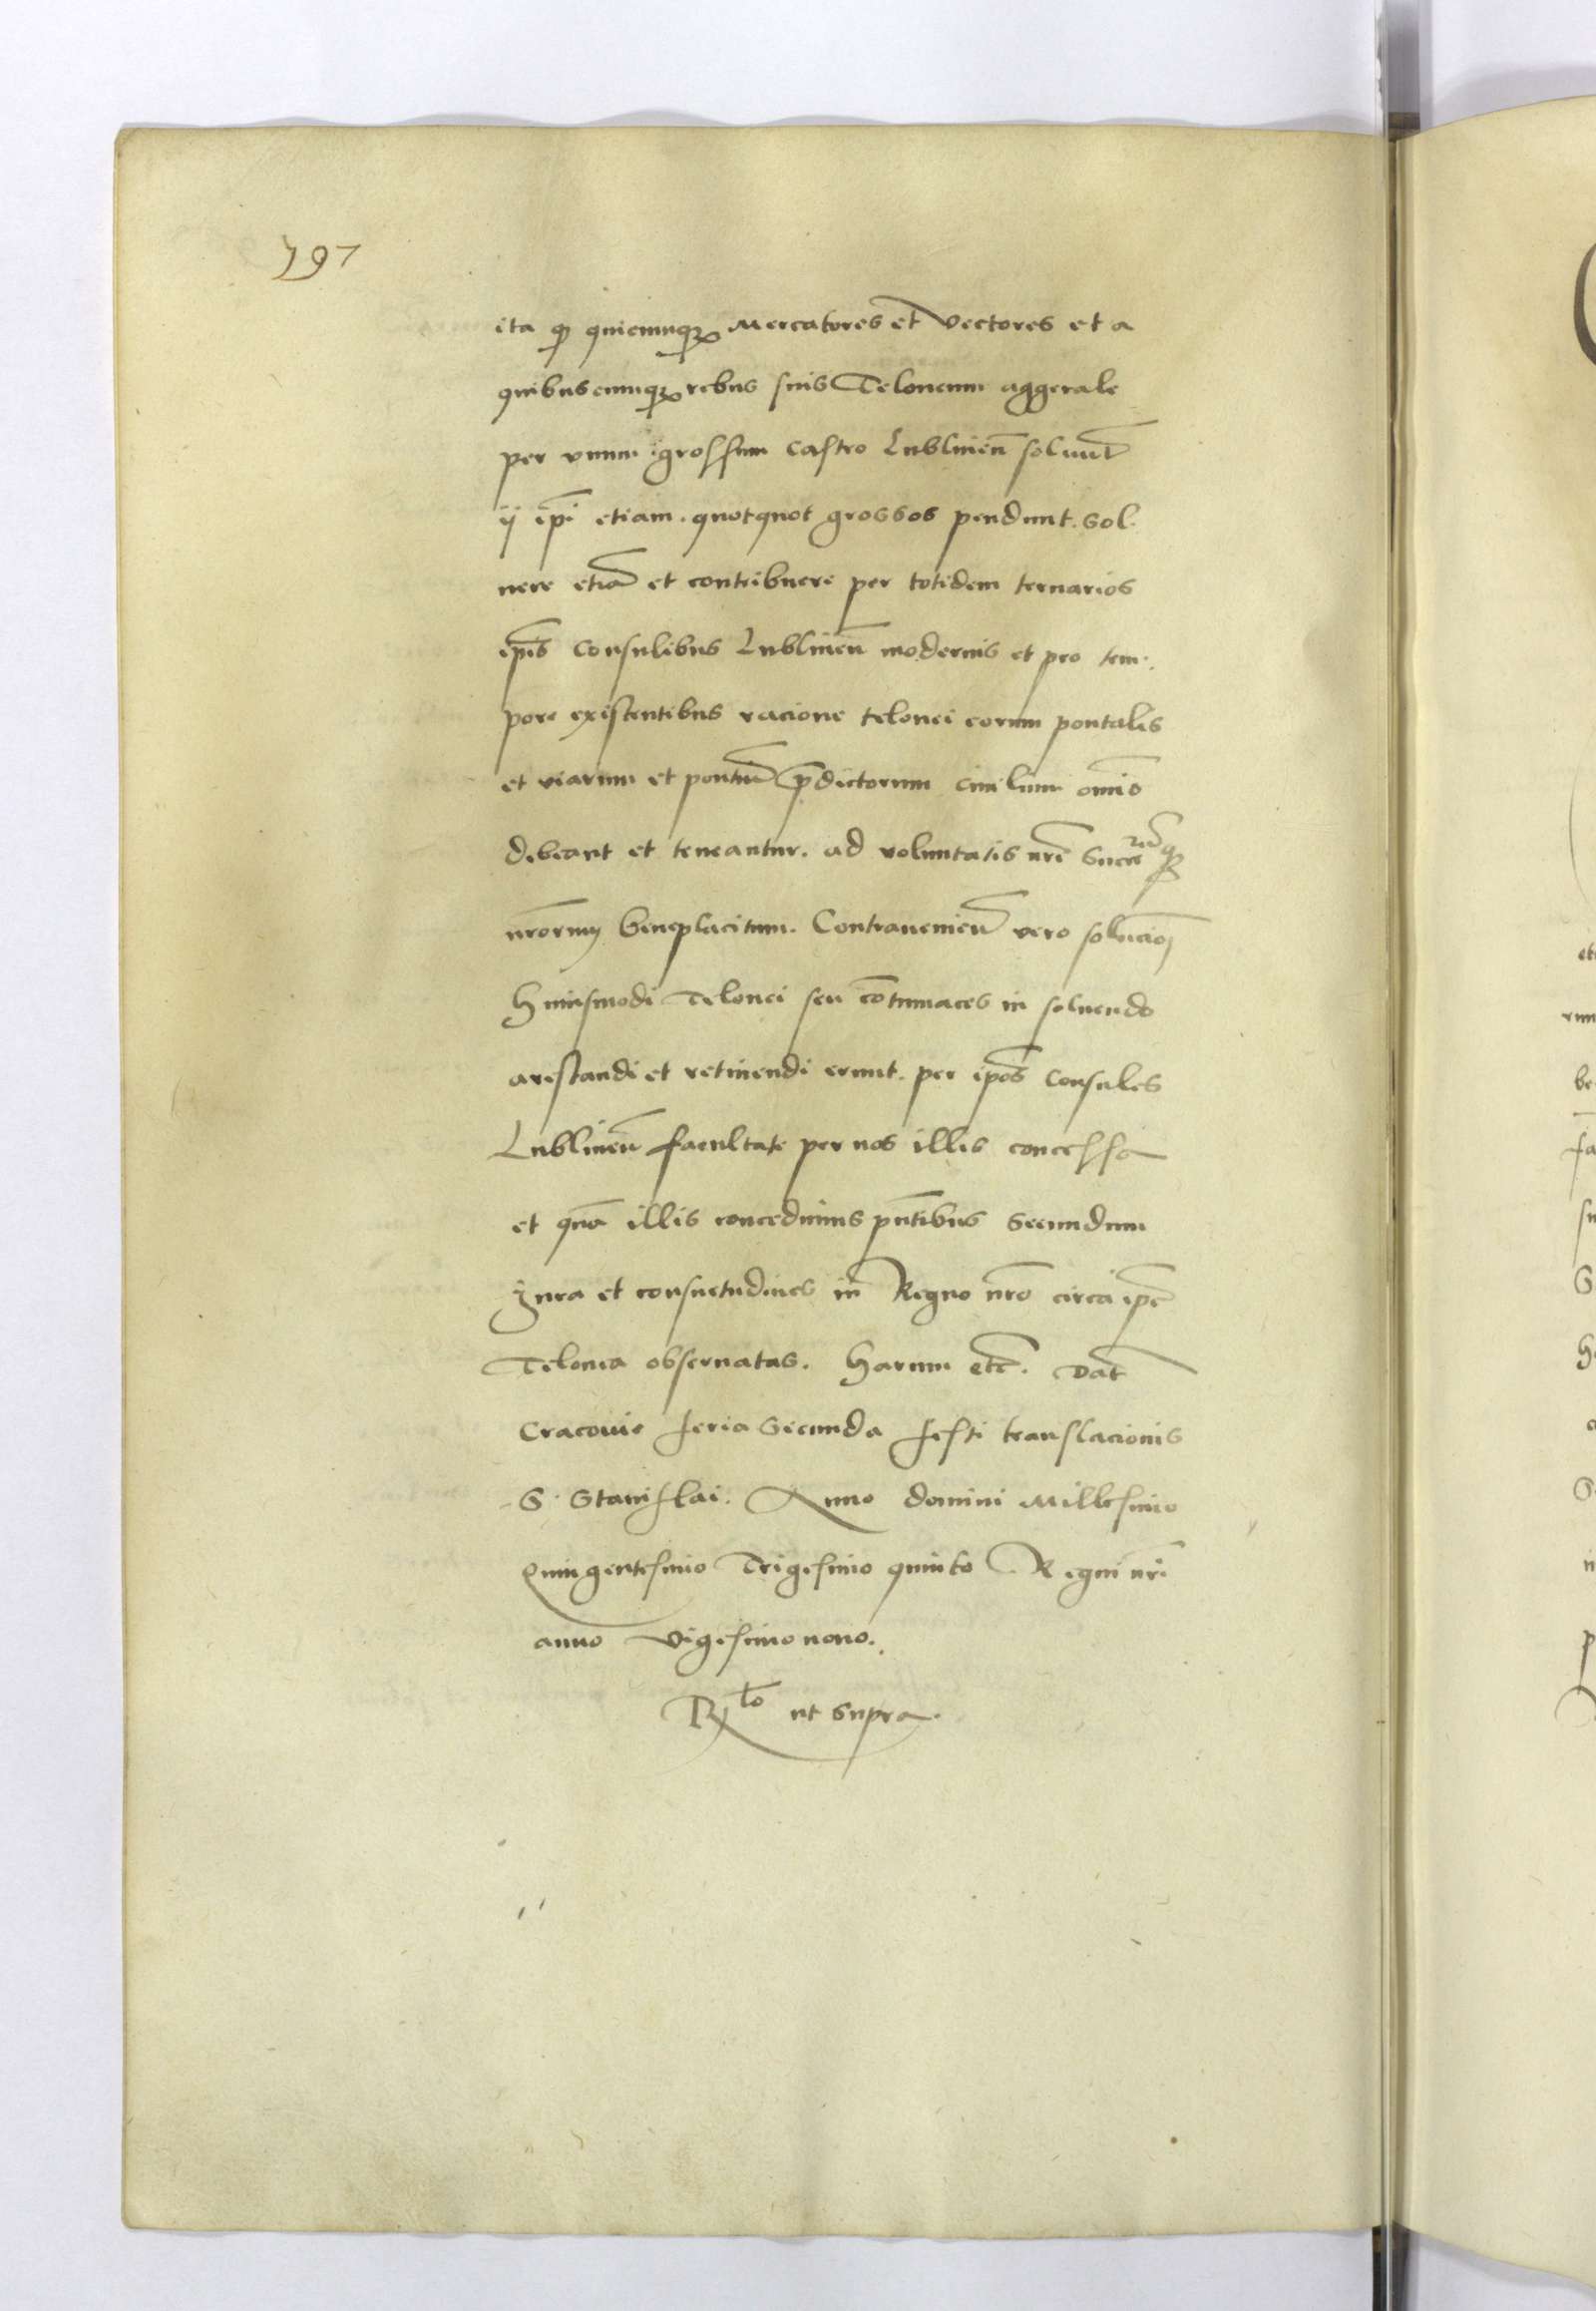 797
ita qͦ quicunqꝫ Mercatores et Vectores et a
quibuscunqꝫ rebus suis Teloneum aggerale
per vnum grossum Castro Lublineñ soluunt
ij ip̄i etiam . quotquot grossos pendunt . sol.
uere etiā et contribuere per totidem ternarios
ip̄is Consulibus Lublineñ modernis et pro tem.
pore existentibus racione telonei eorum pontalis
et viarum et pontiū p̄dictorum ciuilium om̄is
debeant et teneantur. ad voluntatis nr̄e Succ
nr̄orum beneplacitum. Contraueniēn vero soluciōi
Huiusmodi Telonei seu cōtumaces in soluendo
arestandi et retinendi erunt . per ip̄os Consules
Lublineñ facultate per nos illis concessa
et quā illis concedimus pn̄tibus Secundum
Jura et consuetudines in Regno nr̄o circa ip̄a
Telonea obseruatas. Harum etc̄. Dat̄
Cracouie feria Secunda festi translacionis
S. Stanislai. Anno domini Millesimo
Quingentesimo Trigesimo quinto Regni nr̄i
anno Vigesimo nono.
R̄lo ut Supra.